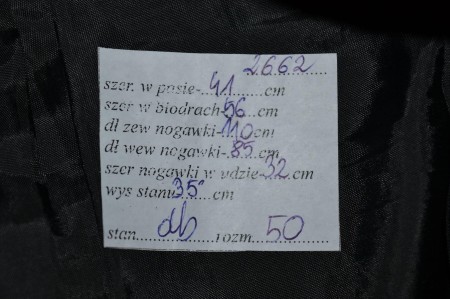 2662
szer. w pasie-41cm
szer w biodrach-56cm
dł zew nogawki-110cm
dł wew nogawki-85cm
szer nogawki w udzie-32cm
wys stanu 35 cm
stan db rozm 50